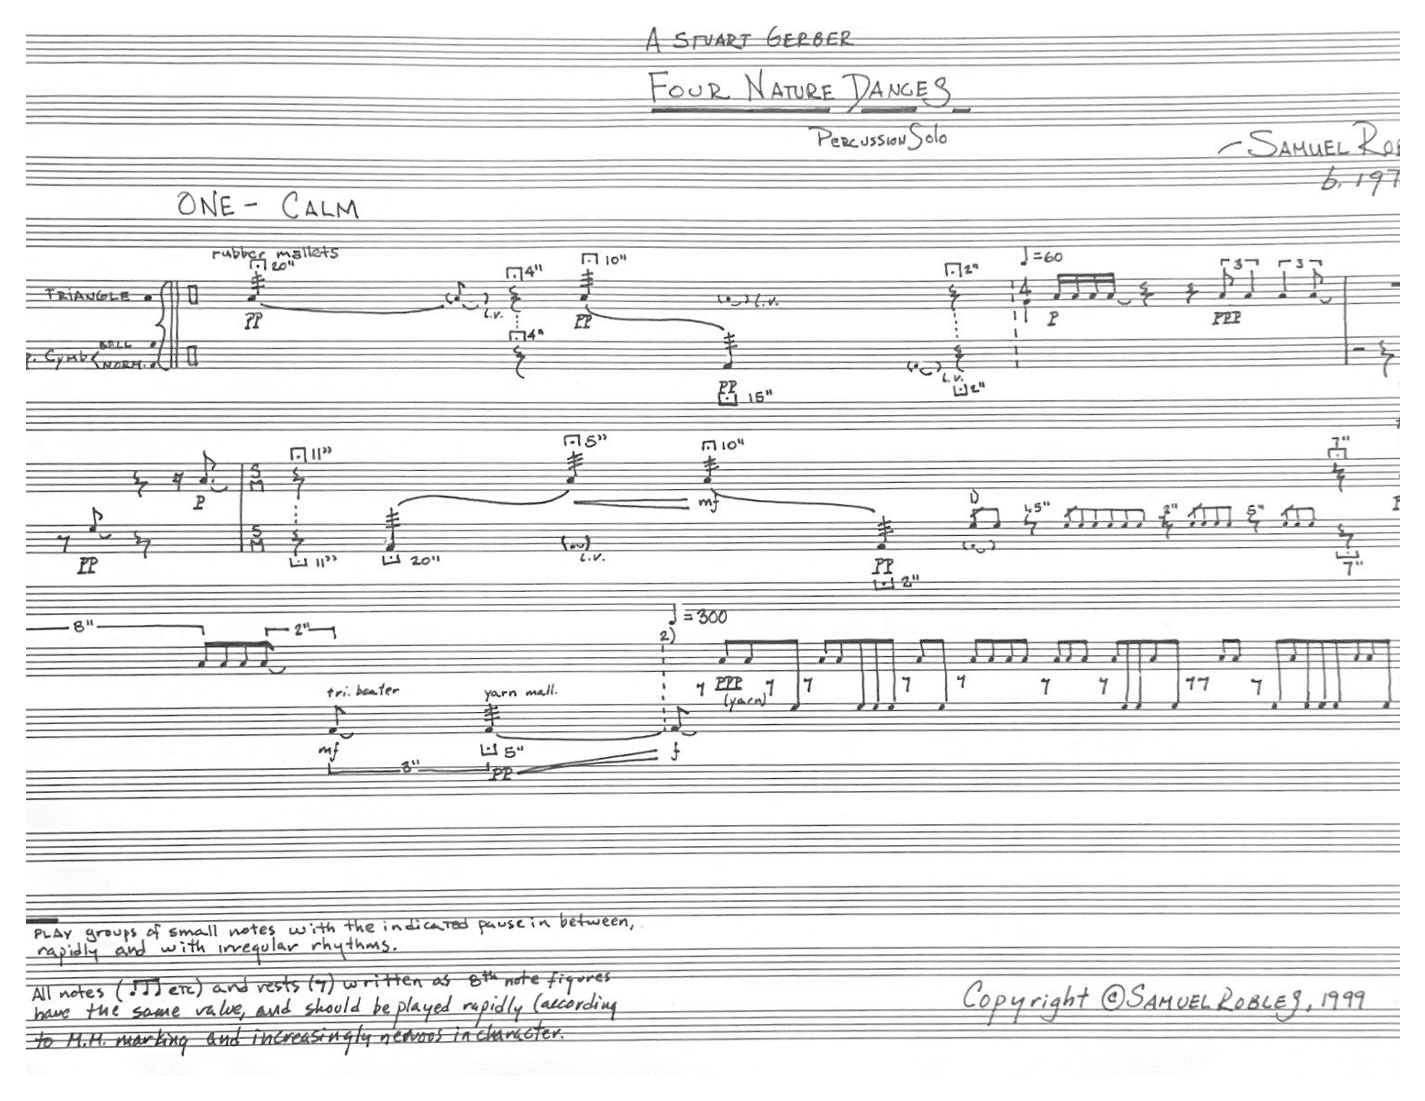 A STUART GERBER
FOUR NATURE DANCES
PERCUSSION SOLO
SAMUEL
b. 197
ONE - CALM
rubber mallets
20" 4" 10" 2" ♩=60
3 3
TRIANGLE
l.v. l.v.
PP PP P PPP
4"
BELL
Cymb NORM.
PP l.v. 2"
15"
11" 5" 10" 7"
P mf
PP 11" 20" l.v. PP 7"
2"
8" 2" ♩=300
2)
tri. beater yarn mall. PPP
(yarn)
mf 5" f
3" PP
PLAY groups of small notes with the indicated pause in between,
rapidly and with irregular rhythms.
All notes (♫ etc) and rests (7) written as 8th note figures
have the same value, and should be played rapidly (according
to M.M. marking and increasingly nervous in character.
Copyright © SAMUEL ROBLES, 1999